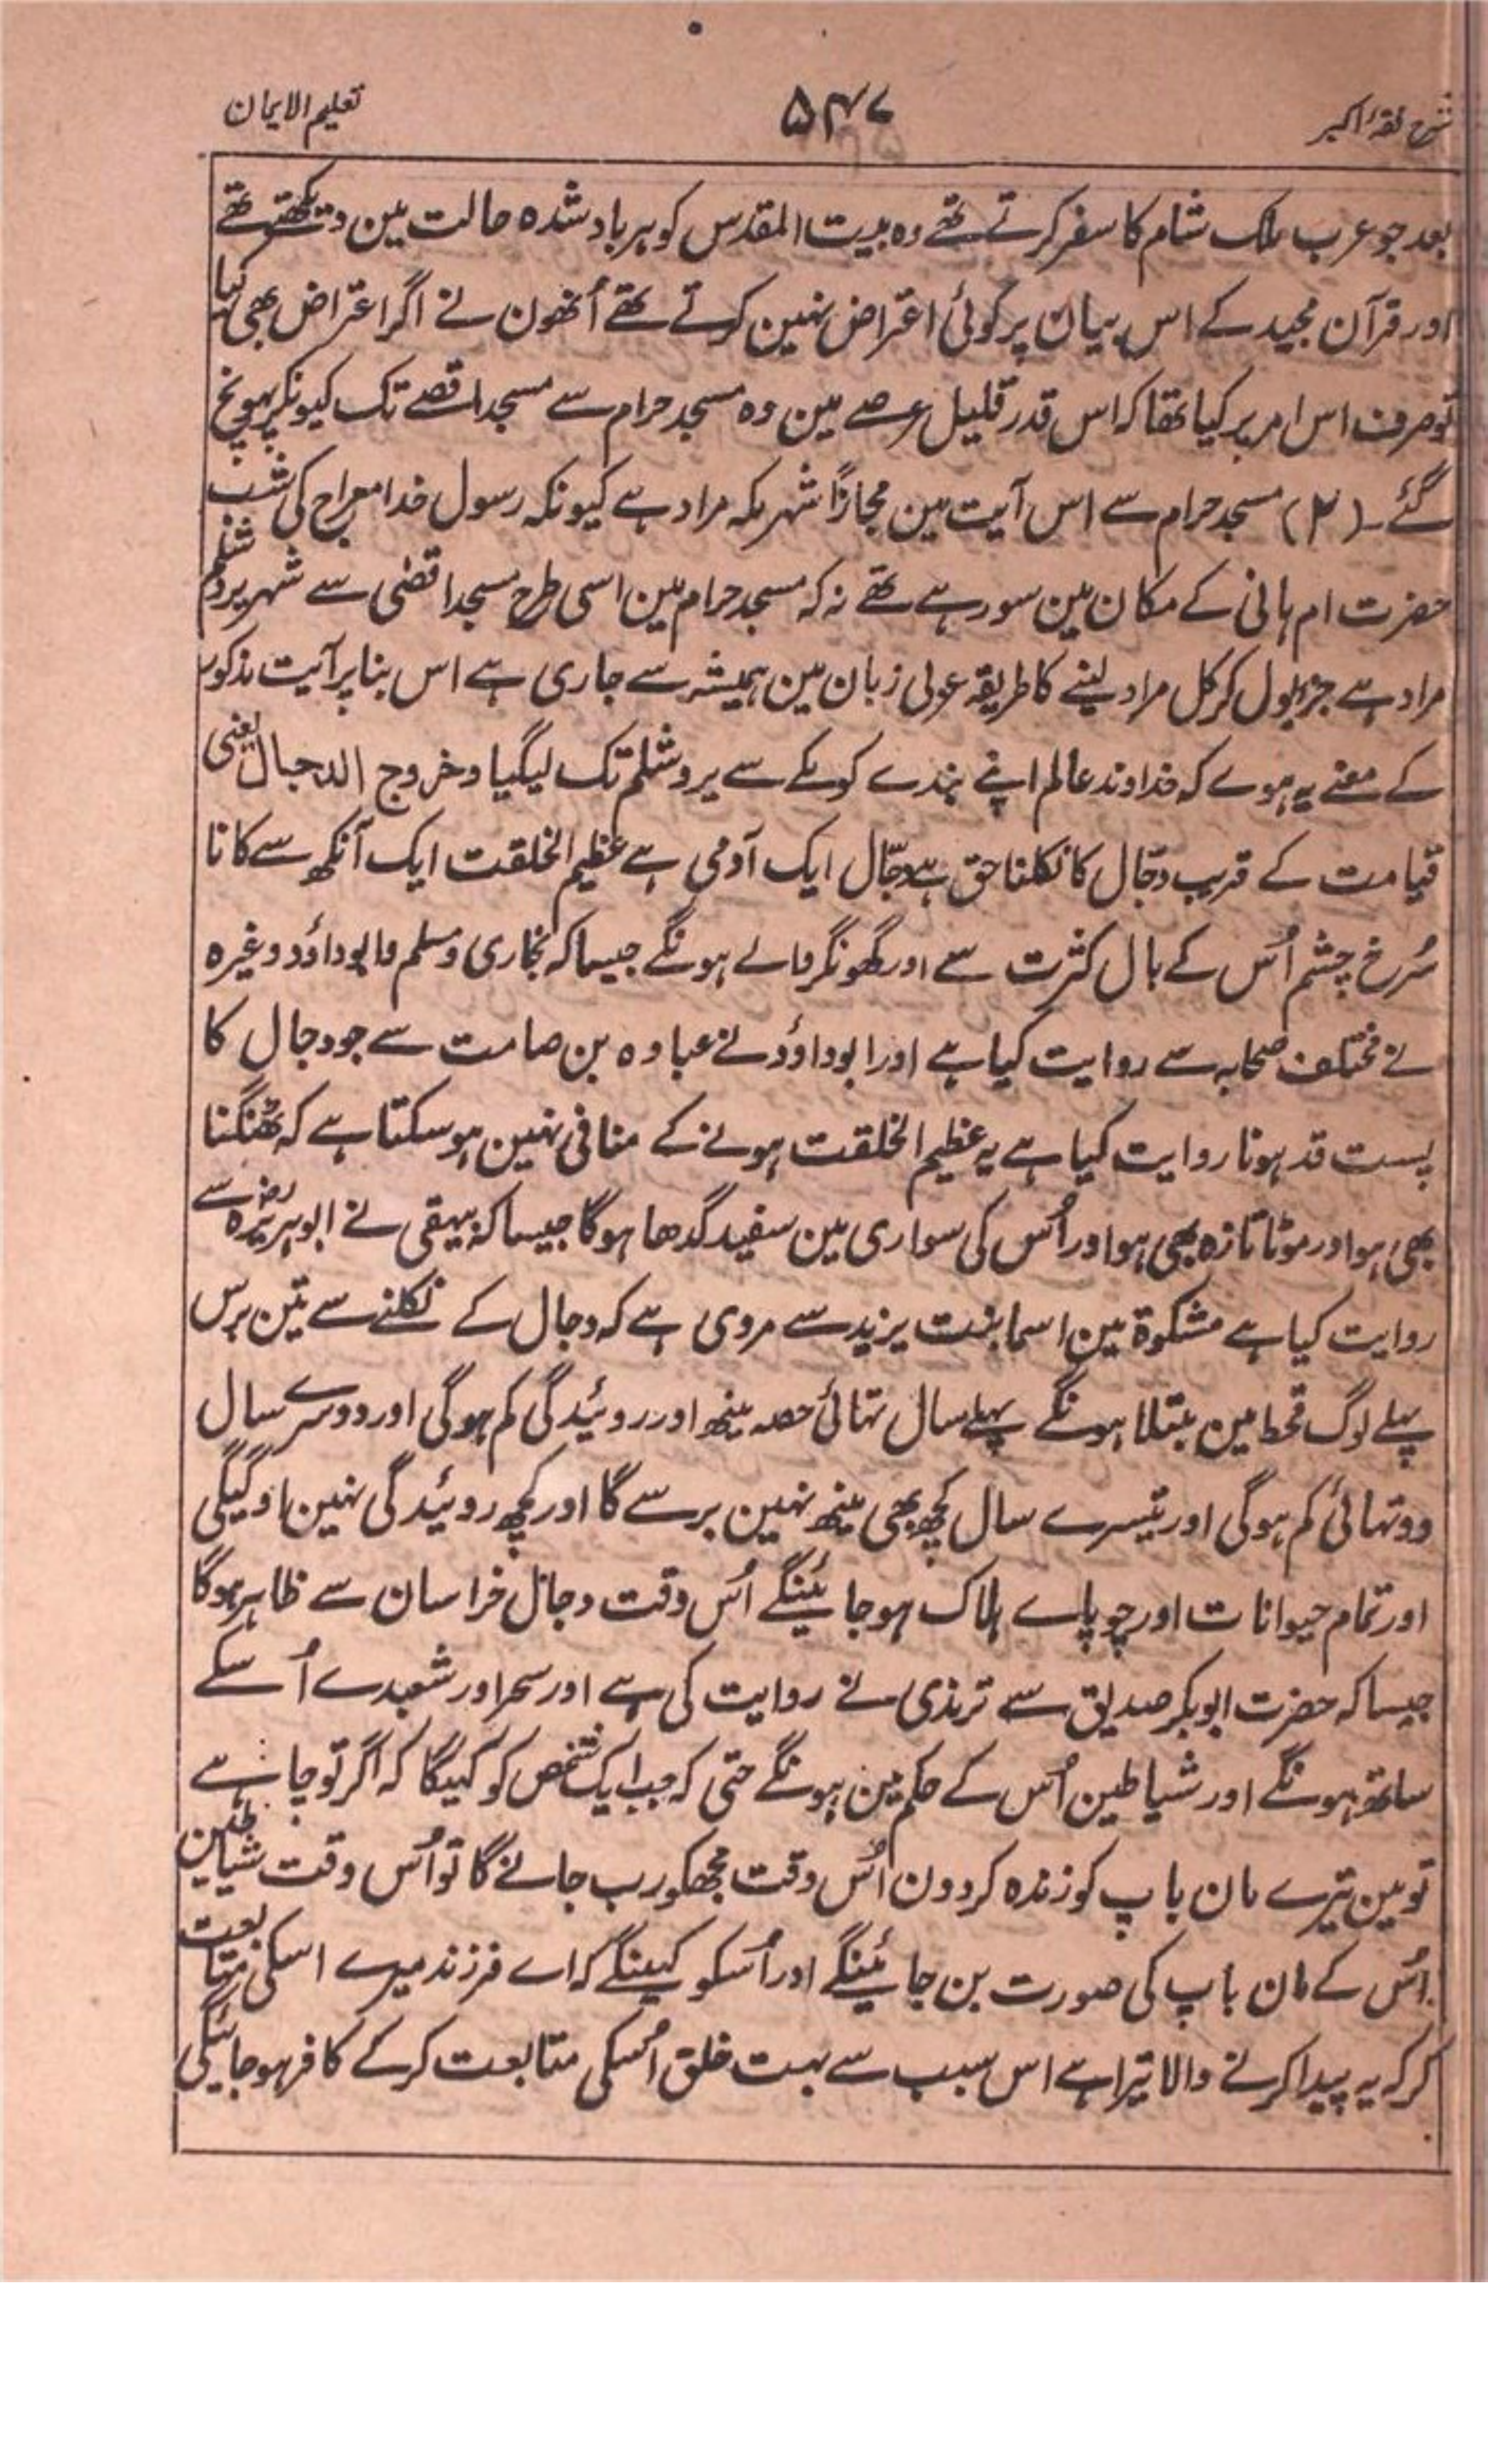 شرح فقہ اکبر
۵۴۷
تعلیم الایمان
بعد جو عرب ملک شام کا سفر کرتے تھے وہ بیت المقدس کو برباد شدہ حالت مین دیکھتے تھے
اور قرآن مجید کے اس بیان پر کوئی اعتراض نہین کرتے تھے اُنھون نے اگر اعتراض بھی کیا
تو صرف اس امر پر کیا تھا کہ اس قدر قلیل عرصے مین وہ مسجد حرام سے مسجد اقصے تک کیونکر پہونچ
گئے۔ (۲) مسجد حرام سے اس آیت مین مجازاً شہر مکہ مراد ہے کیونکہ رسول خدا معراج کی شب
حضرت ام ہانی کے مکان مین سو رہے تھے نہ کہ مسجد حرام مین اسی طرح مسجد اقصٰی سے شہر یروشلم
مراد ہے جزو بول کر کل مراد لینے کا طریقہ عربی زبان مین ہمیشہ سے جاری ہے اس بنا پر آیت مذکور
کے معنے یہ ہوے کہ خداوند عالم اپنے بندے کو مکے سے یروشلم تک لیگیا وخروج الدجال یعنی
قیامت کے قریب دجّال کا نکلنا حق ہے دجّال ایک آدمی ہے عظیم الخلقت ایک آنکھ سے کانا
سُرخ چشم اُس کے بال کثرت سے اور گھونگر والے ہونگے جیسا کہ بخاری و مسلم و ابو داؤد وغیرہ
نے مختلف صحابہ سے روایت کیا ہے اور ابو داؤد نے عبادہ بن صامت سے جو دجال کا
پست قد ہونا روایت کیا ہے یہ عظیم الخلقت ہونے کے منافی نہین ہو سکتا ہے کہ ٹھنگنا
بھی ہو اور موٹا تازہ بھی ہو اور اُس کی سواری مین سفید گدھا ہوگا جیسا کہ بیہقی نے ابو ہریرہ رض سے
روایت کیا ہے مشکوۃ مین اسما بنت یزید سے مروی ہے کہ دجال کے نکلنے سے تین برس
پہلے لوگ قحط مین مبتلا ہونگے پہلے سال تہائی حصہ مینھ اور روئیدگی کم ہوگی اور دوسرے سال
دو تہائی کم ہوگی اور تیسرے سال کچھ بھی مینھ نہین برسے گا اور کچھ روئیدگی نہین اوگیگی
اور تمام حیوانات اور چوپاے ہلاک ہو جائینگے اُس وقت دجال خراسان سے ظاہر ہوگا
جیسا کہ حضرت ابو بکر صدیق سے ترمذی نے روایت کی ہے اور سحر اور شعبدے اُسکے
ساتھ ہونگے اور شیاطین اُس کے حکم مین ہونگے حتی کہ جب ایک شخص کو کہیگا کہ اگر تو چاہے
تو مین تیرے مان باپ کو زندہ کردون اُس وقت مجھکو رب جانے گا تو اُس وقت شیاطین
اُس کے مان باپ کی صورت بن جائینگے اور اُسکو کہینگے کہ اے فرزند میرے اسکی متابعت
کر کہ یہ پیدا کرنے والا تیرا ہے اس سبب سے بہت خلق اُسکی متابعت کرکے کافر ہوجائیگی